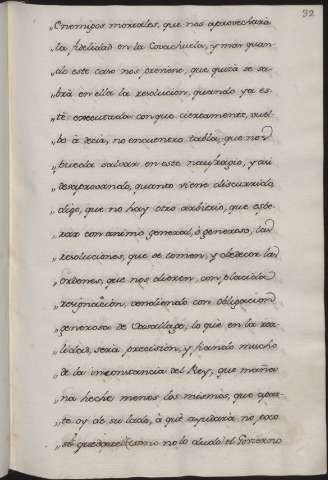 32
„Enemigos mortales, que nos aprovechará
„la fidelidad en la Covachuela, y más quan-
„do este caso nos previene, que quizà se sa-
„brà en ella la resolucion, quando ya es-
„tè executada con que ciertamente, vuel-
„bo à decir, no encuentro tabla, que nos
„pueda salvar en este naufragio, y asi
„desaprovando, quanto viene discurrido
„digo, que no hay otro arbitrio, que espe-
„rar con animo general, ò generoso, las
„resoluciones, que se tomen, y obedecer las
„ordenes, que nos dieren, con placida
„resignacion, vendiendo con obligacion
„generosa de Vasallage, lo que en la rea-
„lidad, seria precision, y fiando mucho
„de la inconstancia del Rey, que maña-
„na heche menos los mismos, que apar-
„te oy de su lado, à què ayudarà no poco
„si (como no lo dudo) el Govierno